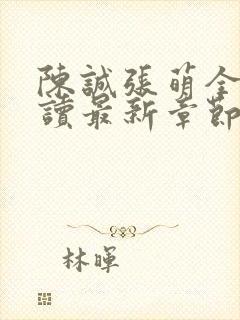 陳誠張萌全
讀最新章節
林暉